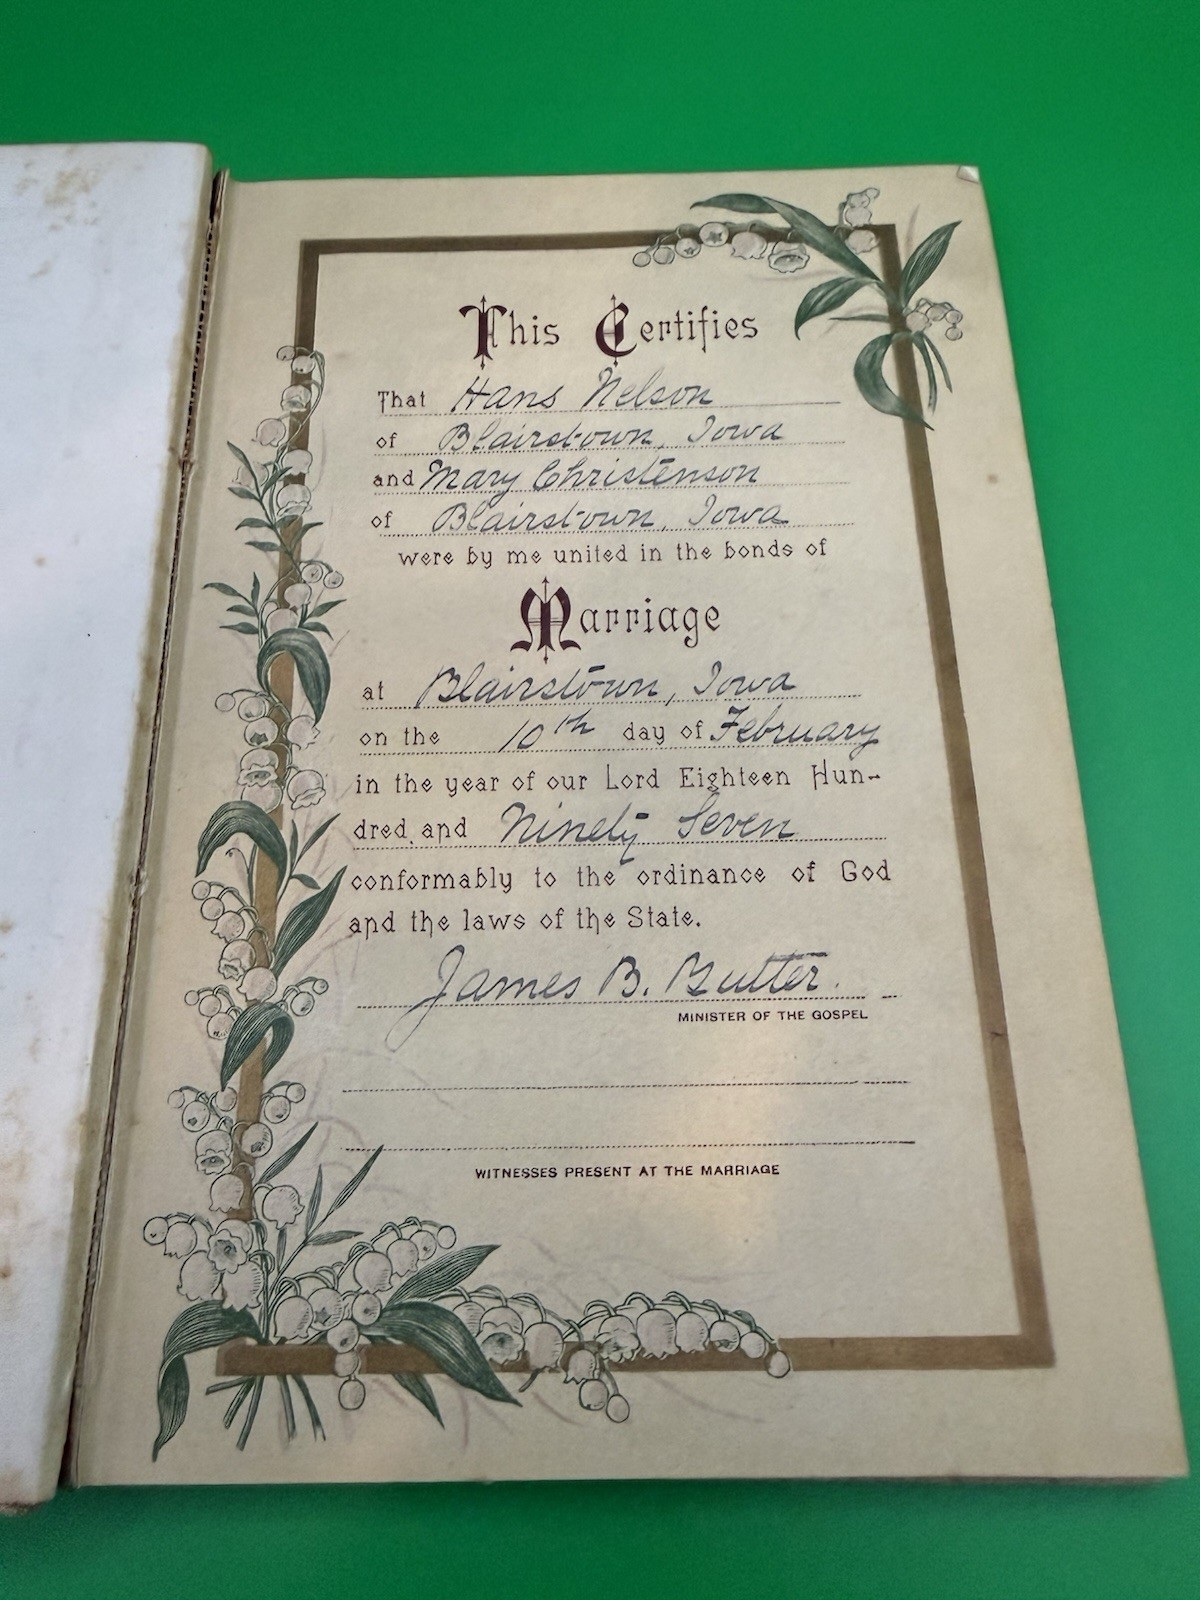 This Certifies
That Hans Nelson
of Blairstown, Iowa
and Mary Christenson
of Blairstown, Iowa
were by me united in the bonds of
Marriage
at Blairstown, Iowa
on the 10th day of February
in the year of our Lord Eighteen Hun-
dred and Ninety Seven
conformably to the ordinance of God
and the laws of the State.
James B. Butter.
MINISTER OF THE GOSPEL
WITNESSES PRESENT AT THE MARRIAGE